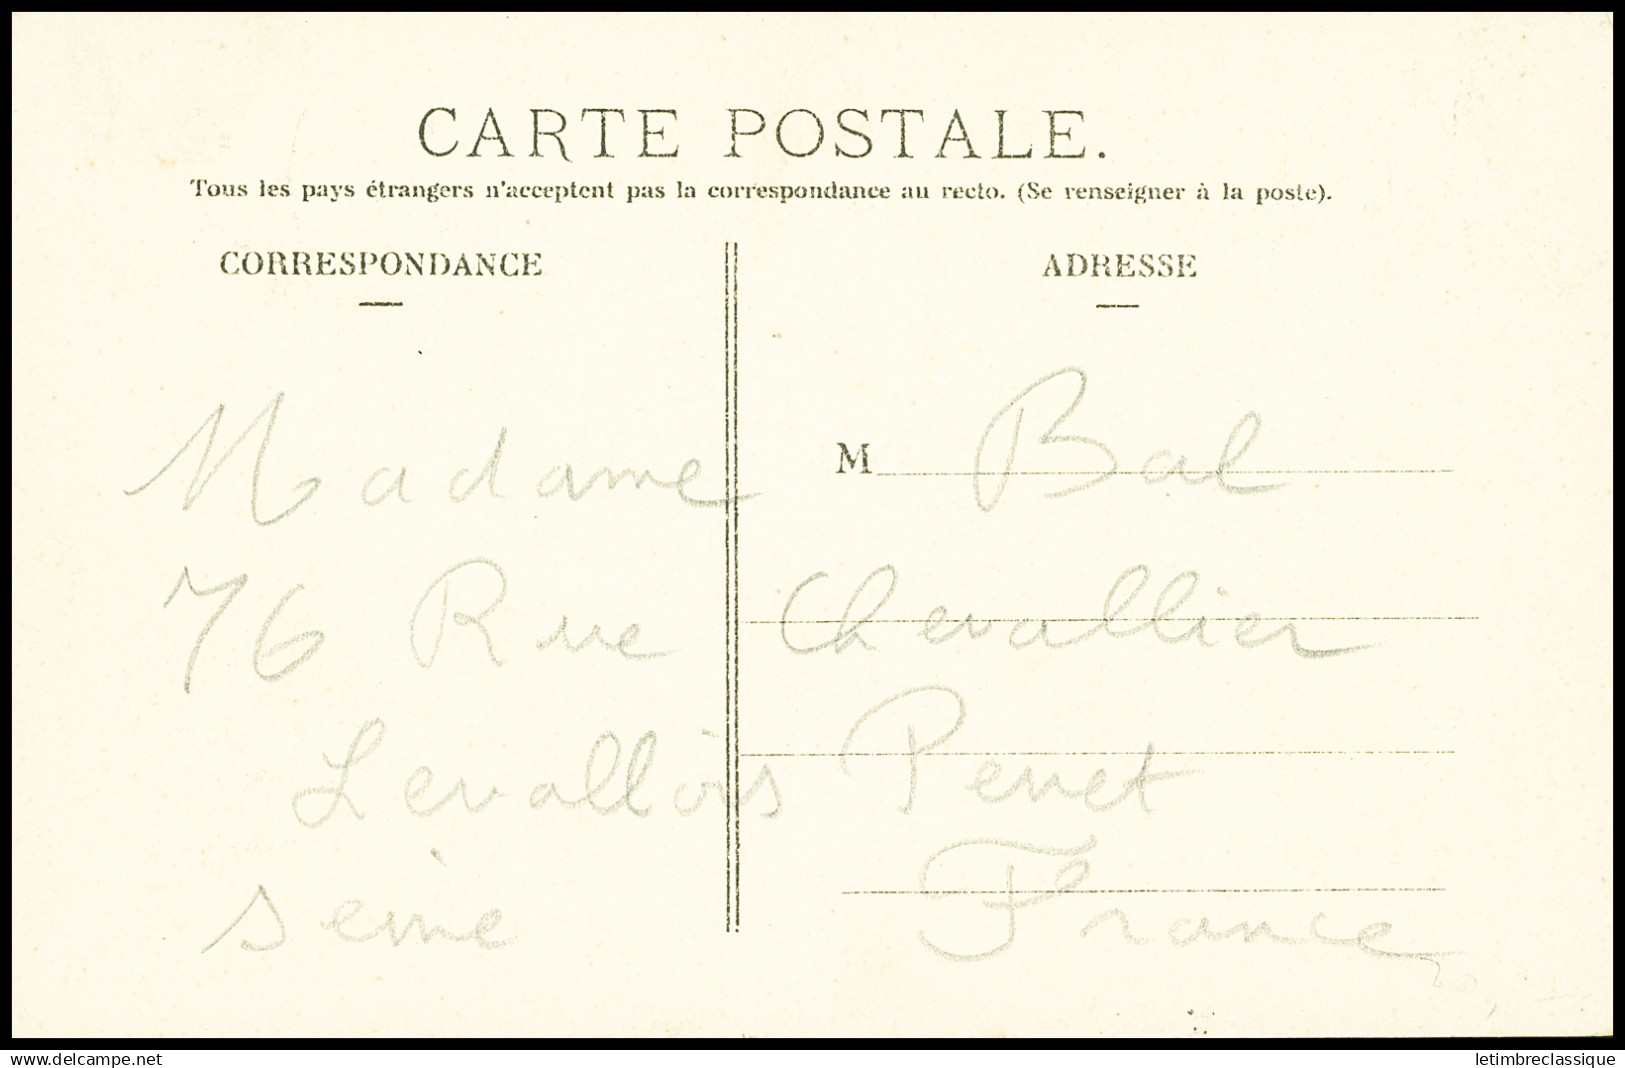 CARTE POSTALE.
Tous les pays étrangers n'acceptent pas la correspondance au recto. (Se renseigner à la poste).
CORRESPONDANCE
ADRESSE
Madame M Bal
76 Rue Chevallier
Levallois Perret
Seine France
www.delcampe.net
letimbreclassique